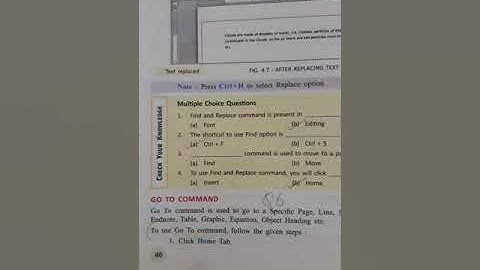 Clouds are made of droplets of water, ice,
Text replaced
FIG. 4.7 : AFTER REPLACING TEXT
Note : Press Ctrl+H to select Replace option
CHECK YOUR KNOWLEDGE
Multiple Choice Questions
1. Find and Replace command is present in
(a) Font (b) Editing
2. The shortcut to use Find option is
(a) Ctrl + F (b) Ctrl + S
3. command is used to move to a
(a) Find (b) Move
4. To use Find and Replace command, you will click
(a) Insert (b) Home
Q6
GO TO COMMAND
Go To command is used to go to a Specific Page, Line,
Endnote, Table, Graphic, Equation, Object Heading etc.
To use Go To command, follow the given steps :
1. Click Home Tab.
40